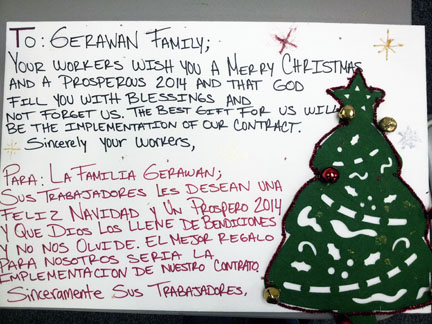 To: Gerawan Family;
Your workers wish you a Merry Christmas
and a prosperous 2014 and that God
fill you with blessings and
not forget us. The best gift for us will
be the implementation of our contract.
Sincerely your workers,
Para: La Familia Gerawan;
Sus trabajadores les desean una
Feliz Navidad y un prospero 2014
y que Dios los llene de bendiciones
y no nos olvide. El mejor regalo
para nosotros seria la
implementacion de nuestro contrato.
Sinceramente sus trabajadores,